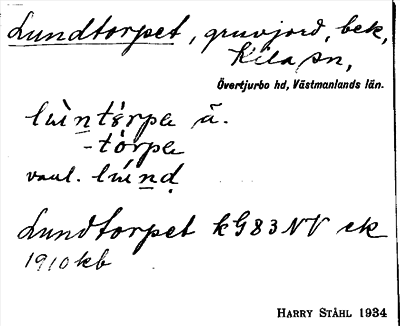 Lundtorpet, gruvjord, bek,
Kila sn,
Övertjurbo hd, Västmanlands län.
lùntòrpe ä.
-tòrpe
vanl. lùnd
Lundtorpet kG83NV ek
1910kb
HARRY STÅHL 1934